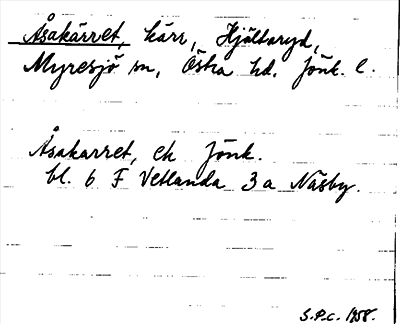 Åsakärret, kärr, Hjältaryd,
Myresjö sn, Östra hd. Jönk. l.
Åsakarret, ek Jönk.
bl. 6 F Vetlanda 3a Näsby.
S.P.C. 1958.